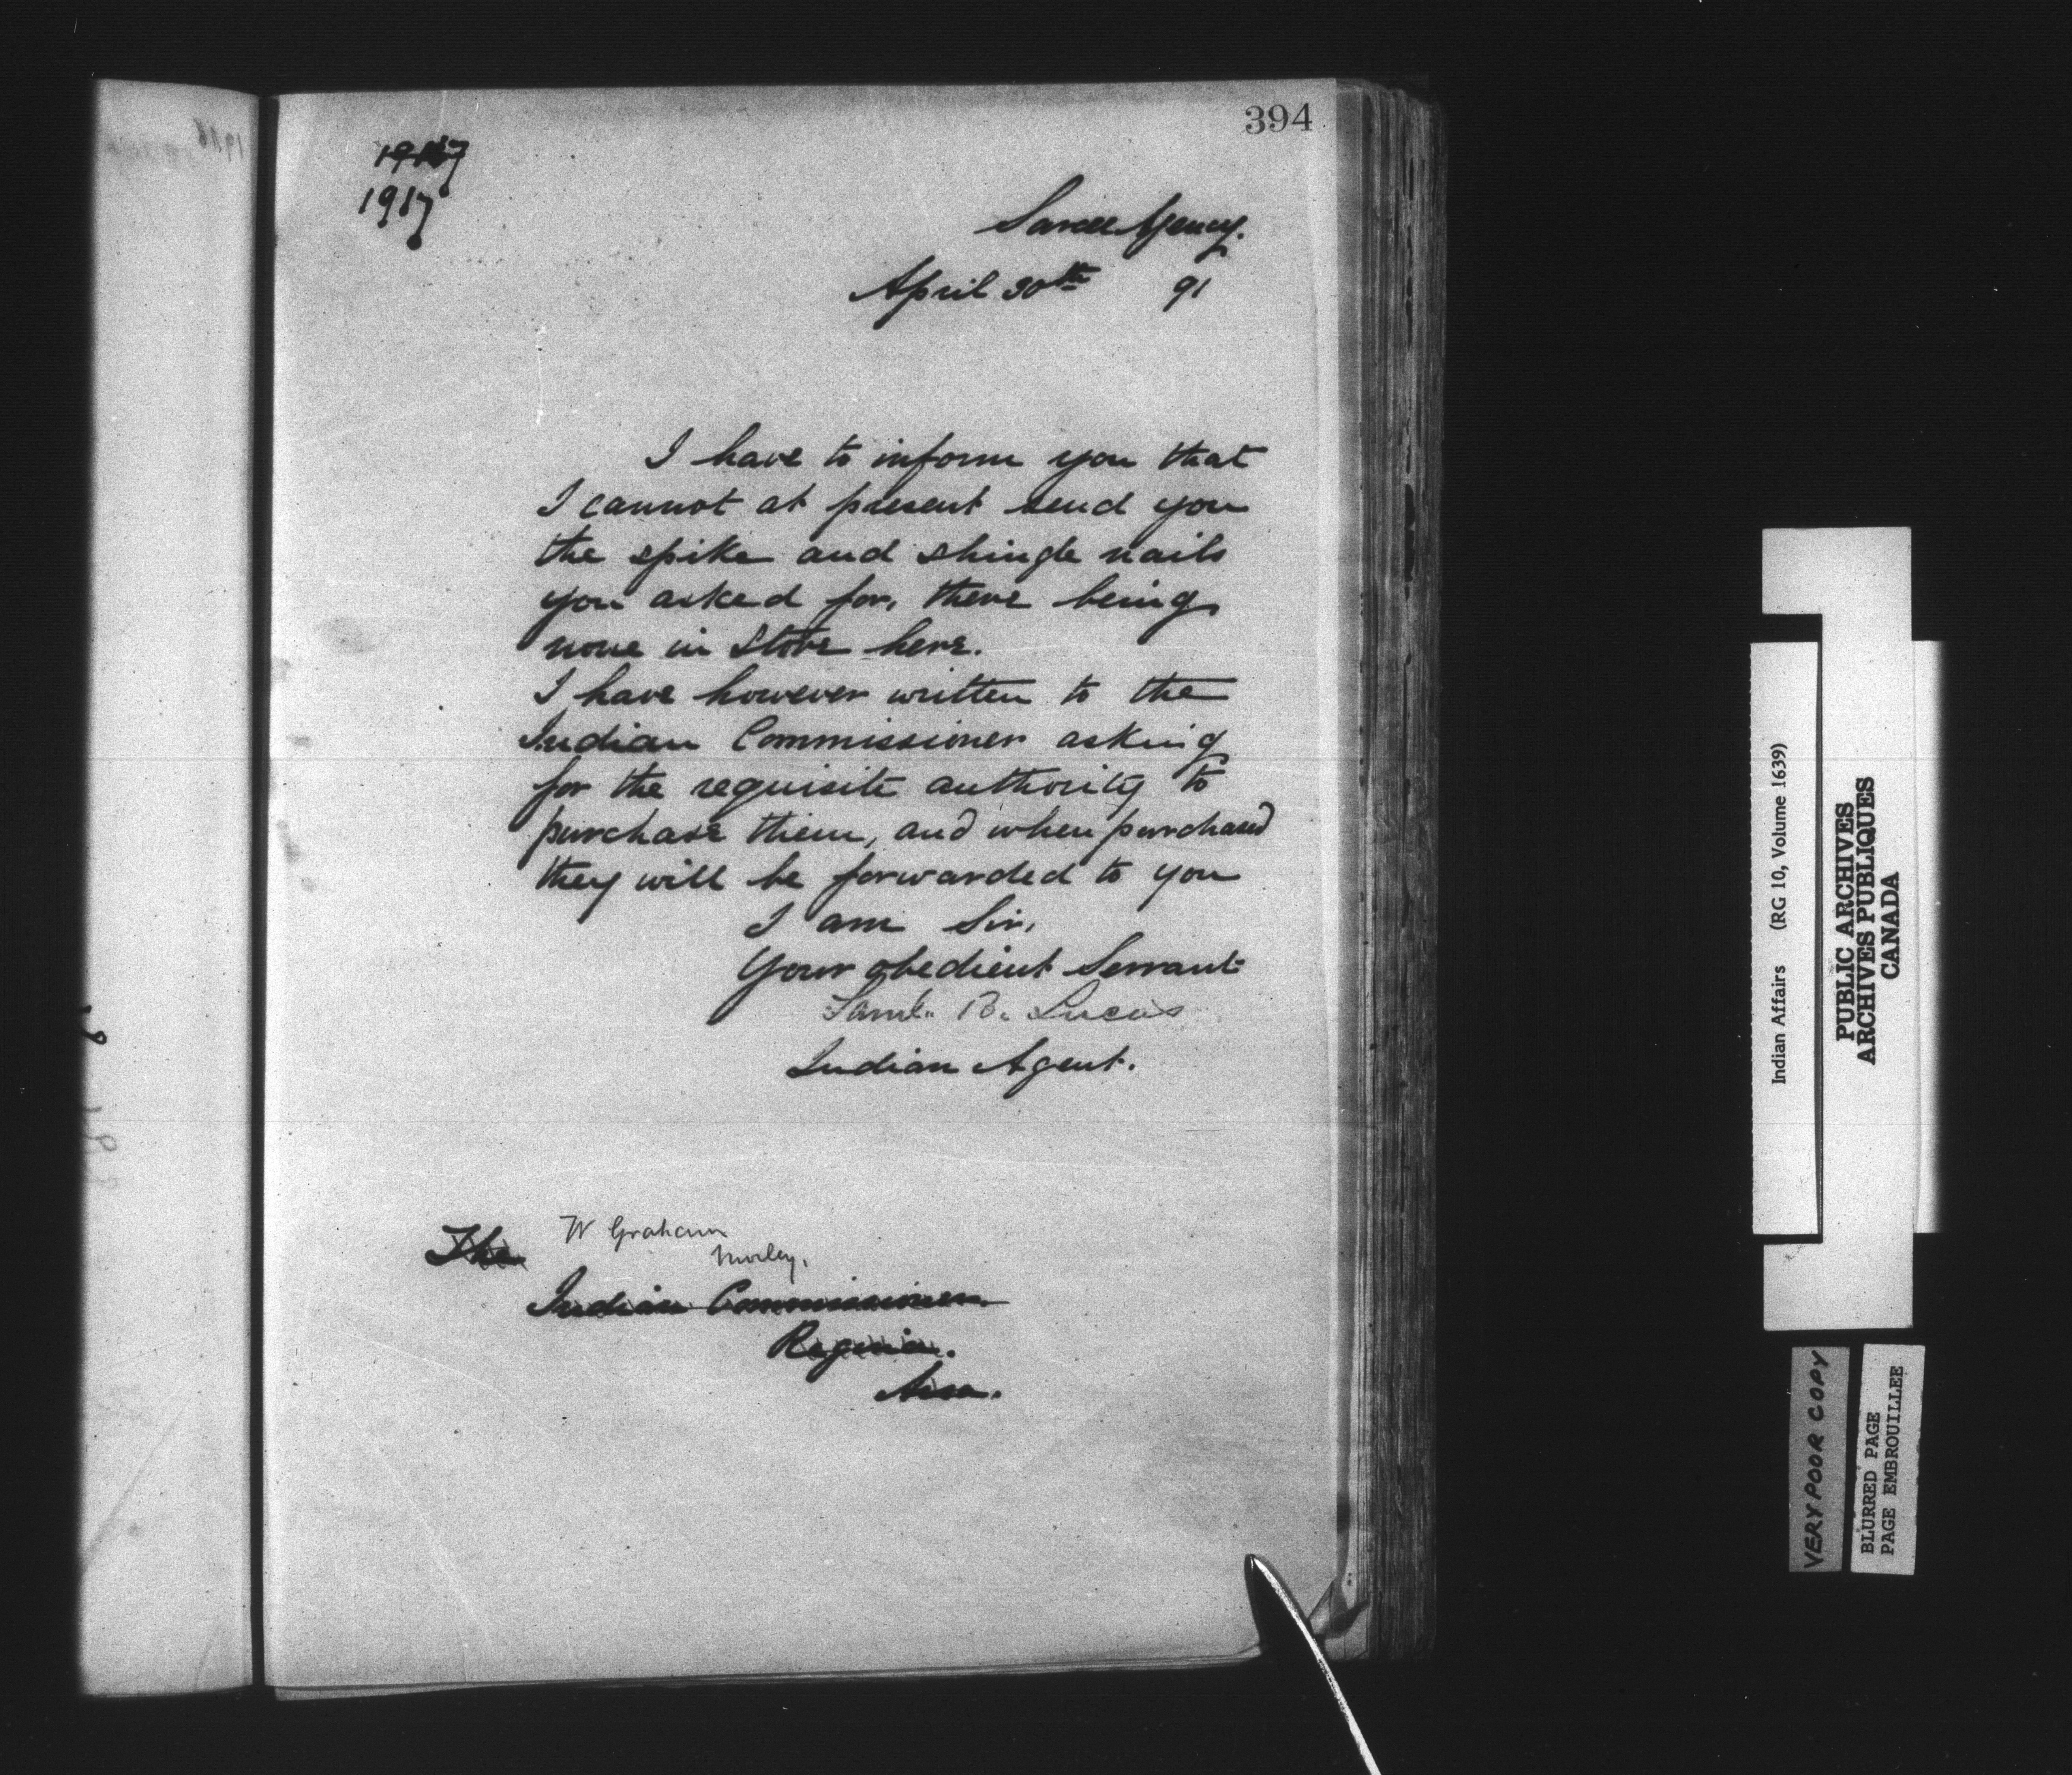 394
1917
1917
Sarcee Agency.
April 30th 91
I have to inform you that
I cannot at present send you
the spike and shingle nails
you asked for, there being
none in store here.
I have however written to the
Indian Commissioner asking
for the requisite authority to
purchase them, and when purchased
they will be forwarded to you
I am Sir,
Your obedient Servant
Saml. B. Lucas
Indian Agent.
W Graham
Morley.
The
Indian Commissioner
Regina.
Assa.
Indian Affairs (RG 10, Volume 1639)
PUBLIC ARCHIVES
ARCHIVES PUBLIQUES
CANADA
VERY POOR COPY
BLURRED PAGE
PAGE EMBROUILLEE